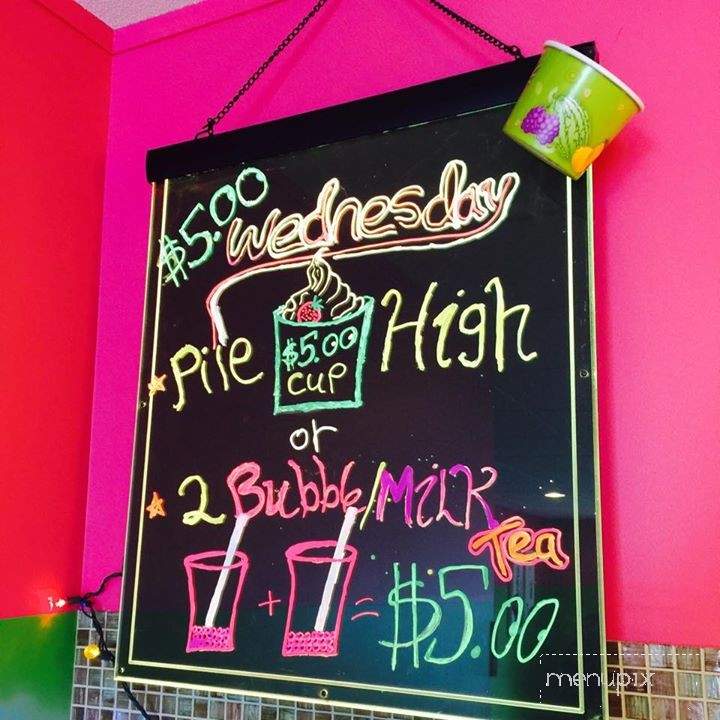 $5.00 Wednesday
Pile High
$5.00
CUP
or
2 Bubble/Milk
Tea
+ = $5.00
menupix